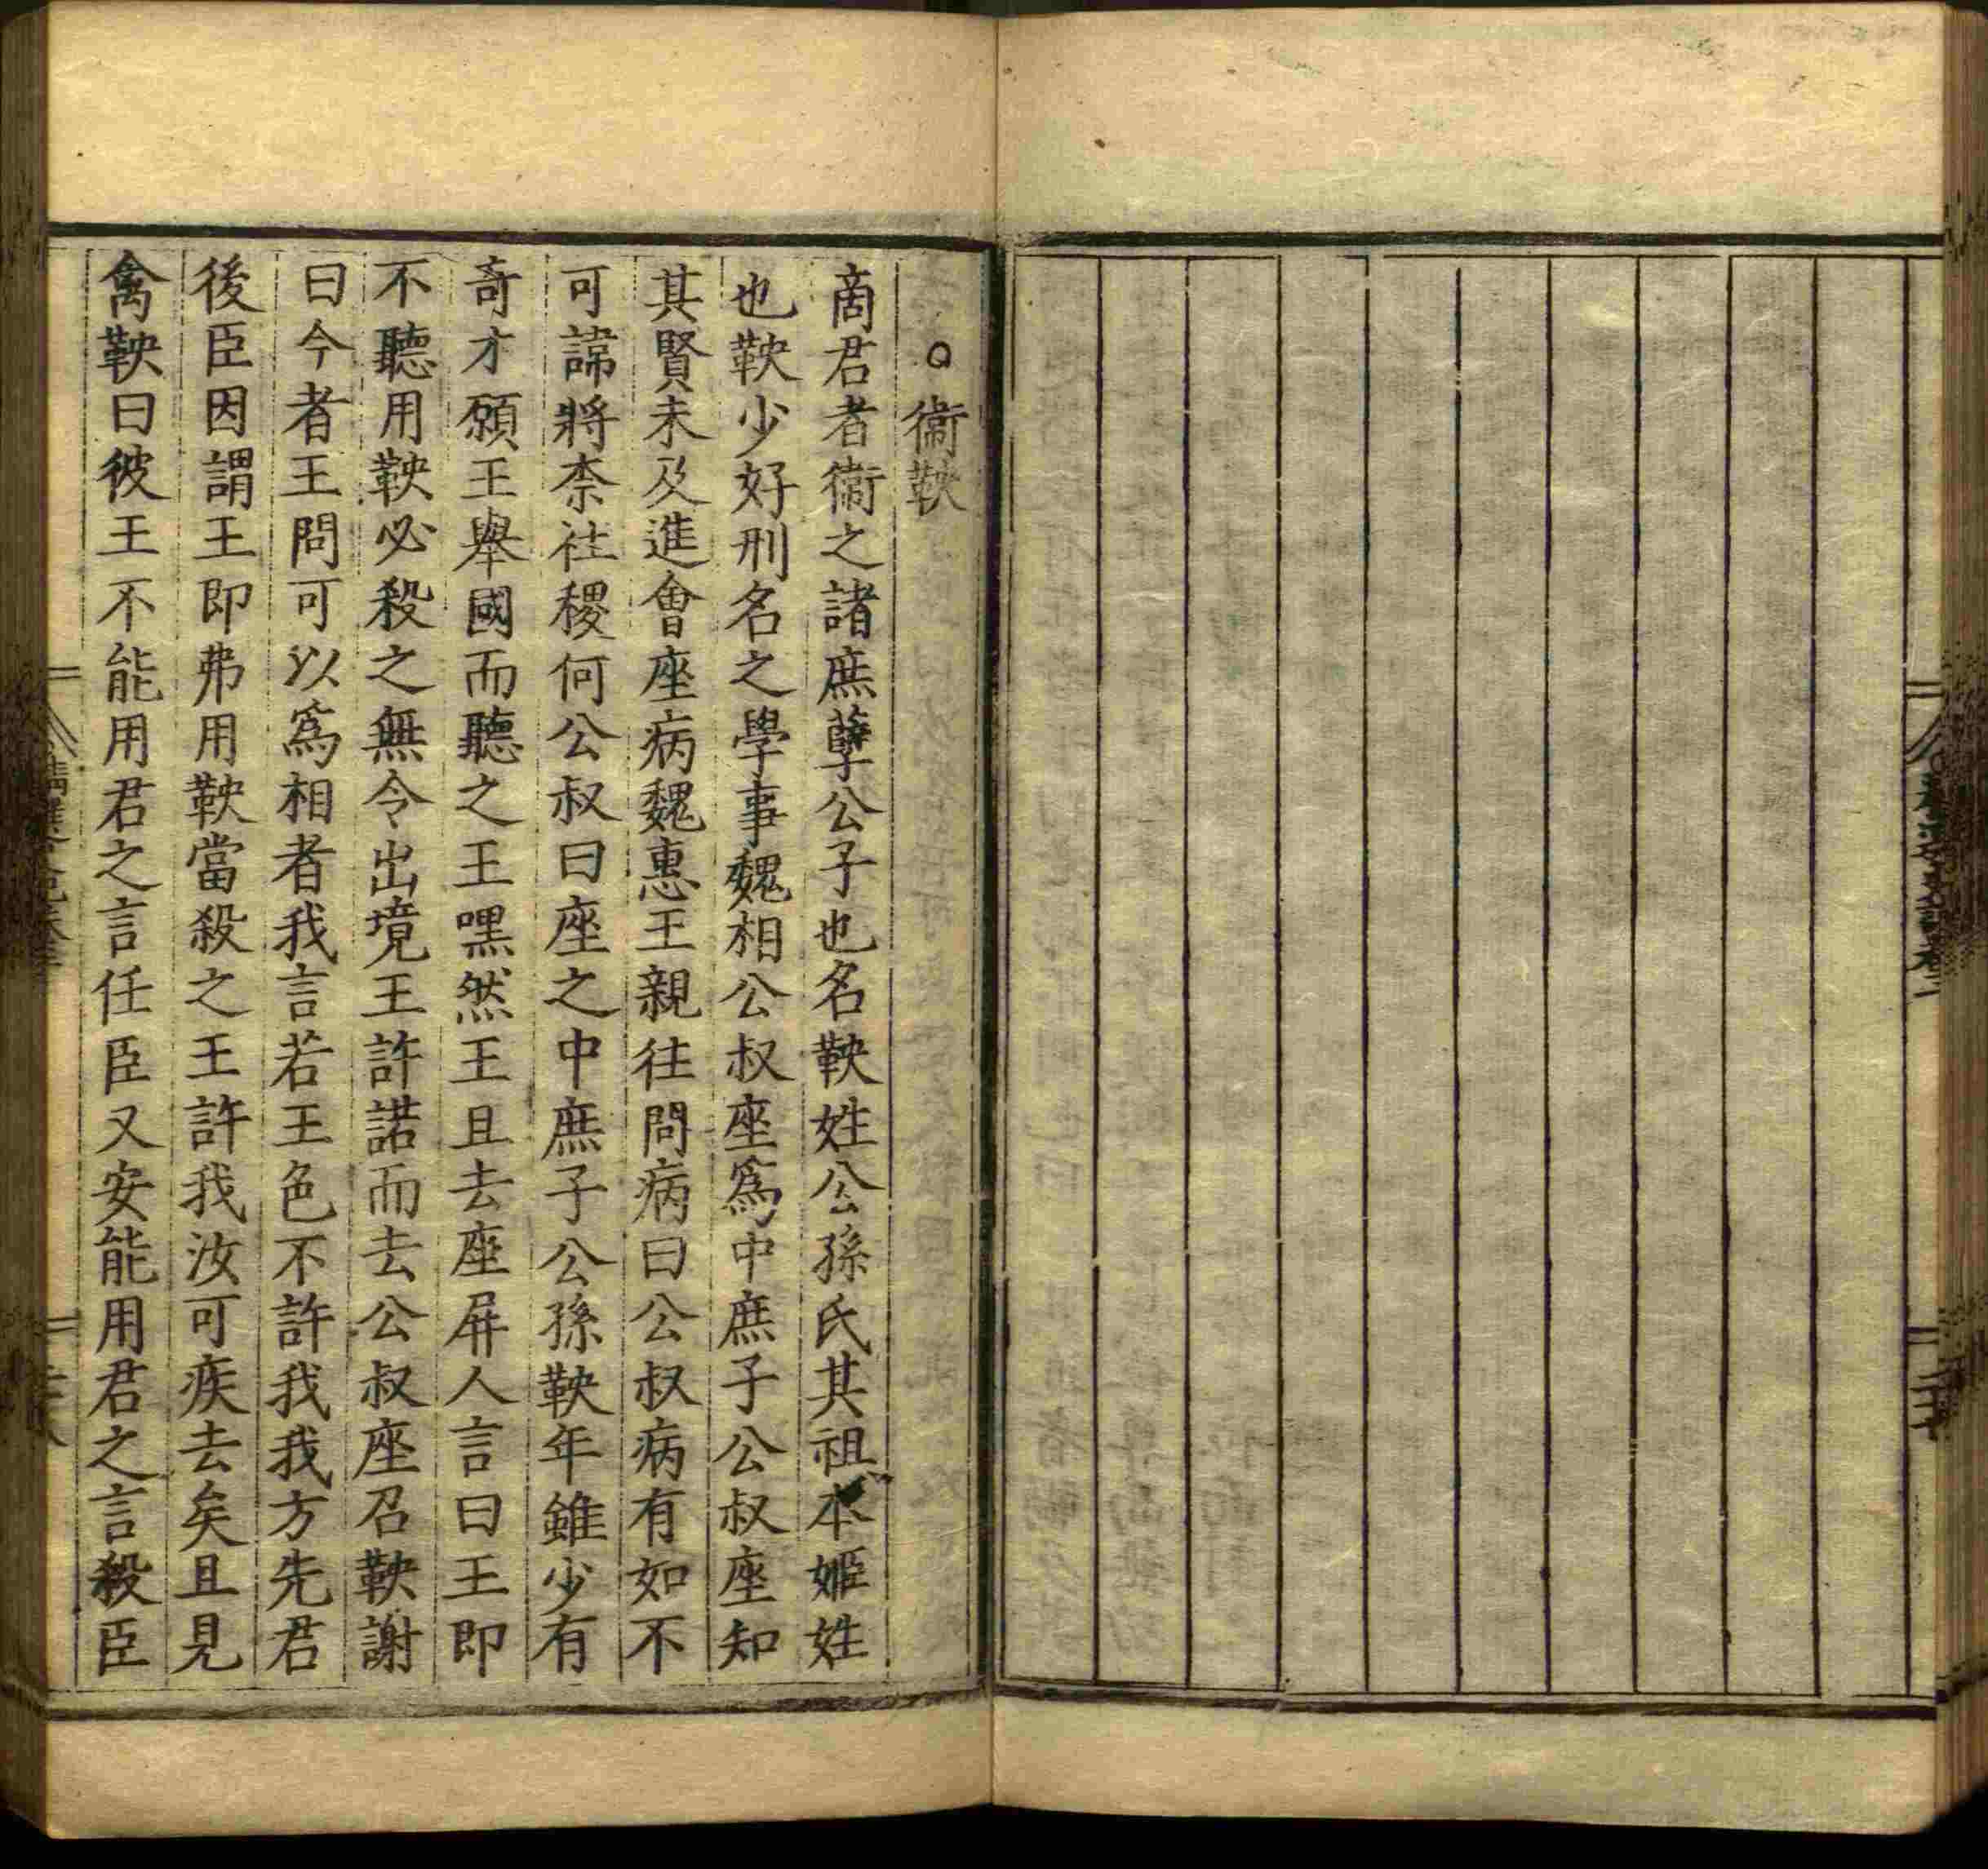 二十七
○衞鞅
商君者衞之諸庶孽公子也名鞅姓公孫氏其祖本姬姓
也鞅少好刑名之學事魏相公叔座爲中庶子公叔座知
其賢未及進會座病魏惠王親往問病曰公叔病有如不
可諱將柰社稷何公叔曰座之中庶子公孫鞅年雖少有
奇才願王舉國而聽之王嘿然王且去座屏人言曰王即
不聽用鞅必殺之無令出境王許諾而去公叔座召鞅謝
曰今者王問可以爲相者我言若王色不許我我方先君
後臣因謂王即弗用鞅當殺之王許我汝可疾去矣且見
禽鞅曰彼王不能用君之言任臣又安能用君之言殺臣